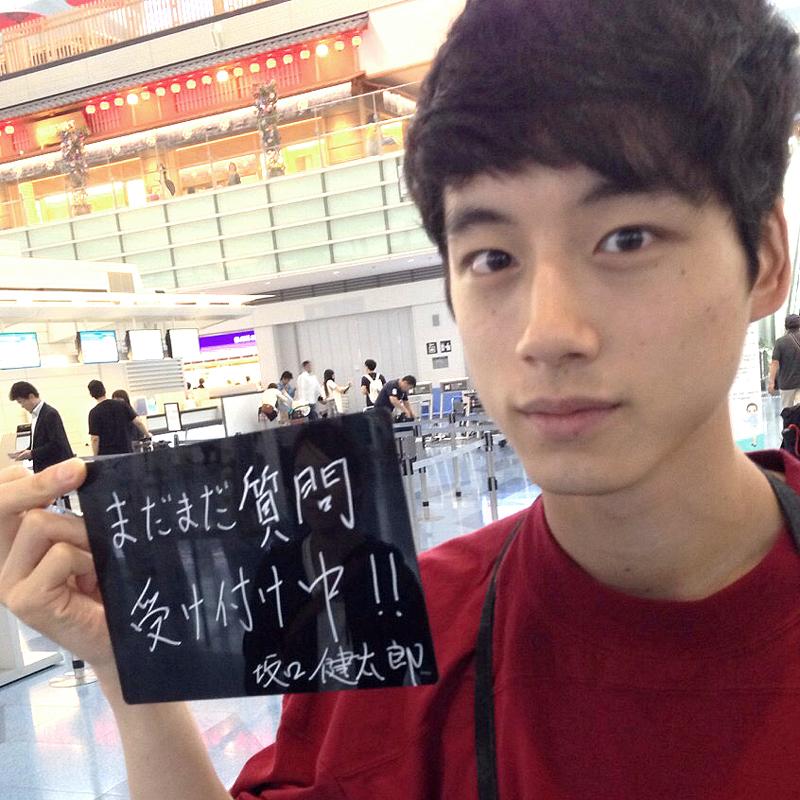 まだまだ質問
受け付け中!!
坂口健太郎